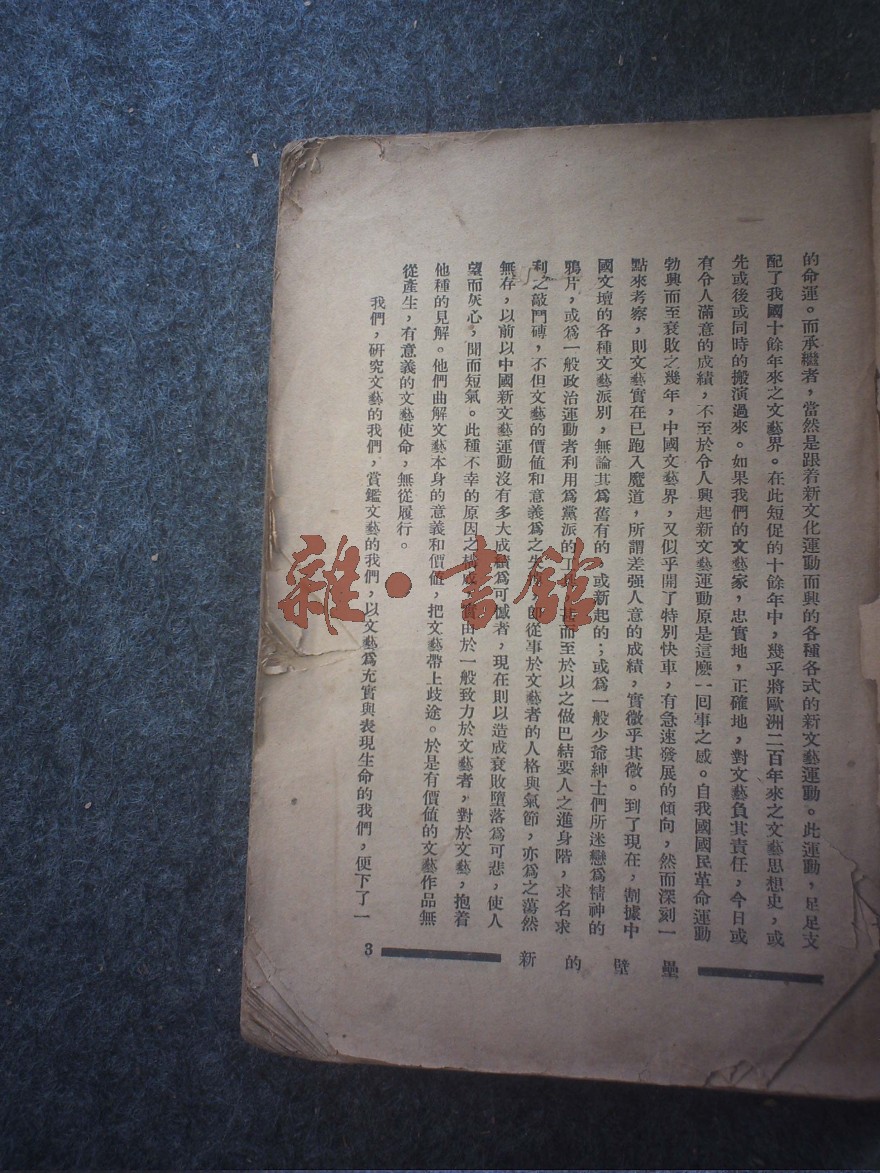 的命運。而承繼者，當然是跟着新文化運動而興的各種各式的新文藝運動。此運動，足足支
配了我國十餘年來之文藝界。在此短促的十餘年中，幾乎將歐洲二百年來之文藝思想史，或
先或後或同時的搬演過來。如果我們的文藝家，忠實地，正確地，對文藝負其責任，今日或
有令人滿意的成績，不至於令人興起新文藝運動原是這麽一回事之感。自我國國民革命運動
勃興而至衰敗之幾年，中國文藝界，又似乎開了特別快車，有急速發展的傾向，然而深刻一
點來考察，則文藝實在已跑入魔道，所謂差强人意的成績，實微乎其微。到了現在，割據中
國文壇的各種文藝派別，無論其爲舊有的 或新起的；或爲一般少爺紳士們所迷戀爲精神的
鴉片，或爲一般政治運動者利用爲黨派的工 甚而至於以之做巴結要人之進身階，求名求
利之敲門磚，不但文藝的價值和意義爲之失 卽從事於文藝者的人格與氣節，亦爲之蕩然
無存，以前以中國新文藝運動沒有多大成績爲可憾者，現在則以造成衰敗墮落爲可悲，使人
望而灰心，聞而短氣。此種不幸的原因之構成 實由於一般致力於文藝者，對於文藝，抱着
他種的見解。他們曲解文藝本身的意義和價值，把文藝帶上歧途。於是有價値的文藝作品無
從產生，有意義的文藝使命，無從履行。
我們，研究文藝的我們，賞鑑文藝的我們，以文藝爲充實與表現生命的我們，便下了一
新的壁壘
3
雜·書館